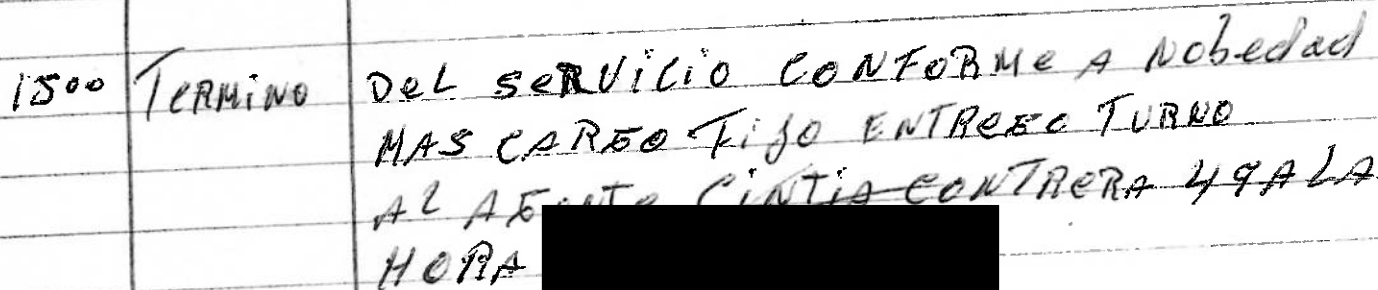 1500 TERMINO DEL SERVICIO CONFORME A NOBEDAD
MAS CARGO FIJO ENTREGO TURNO
AL AGENTE CINTIA CONTRERA 49 A LA
HORA